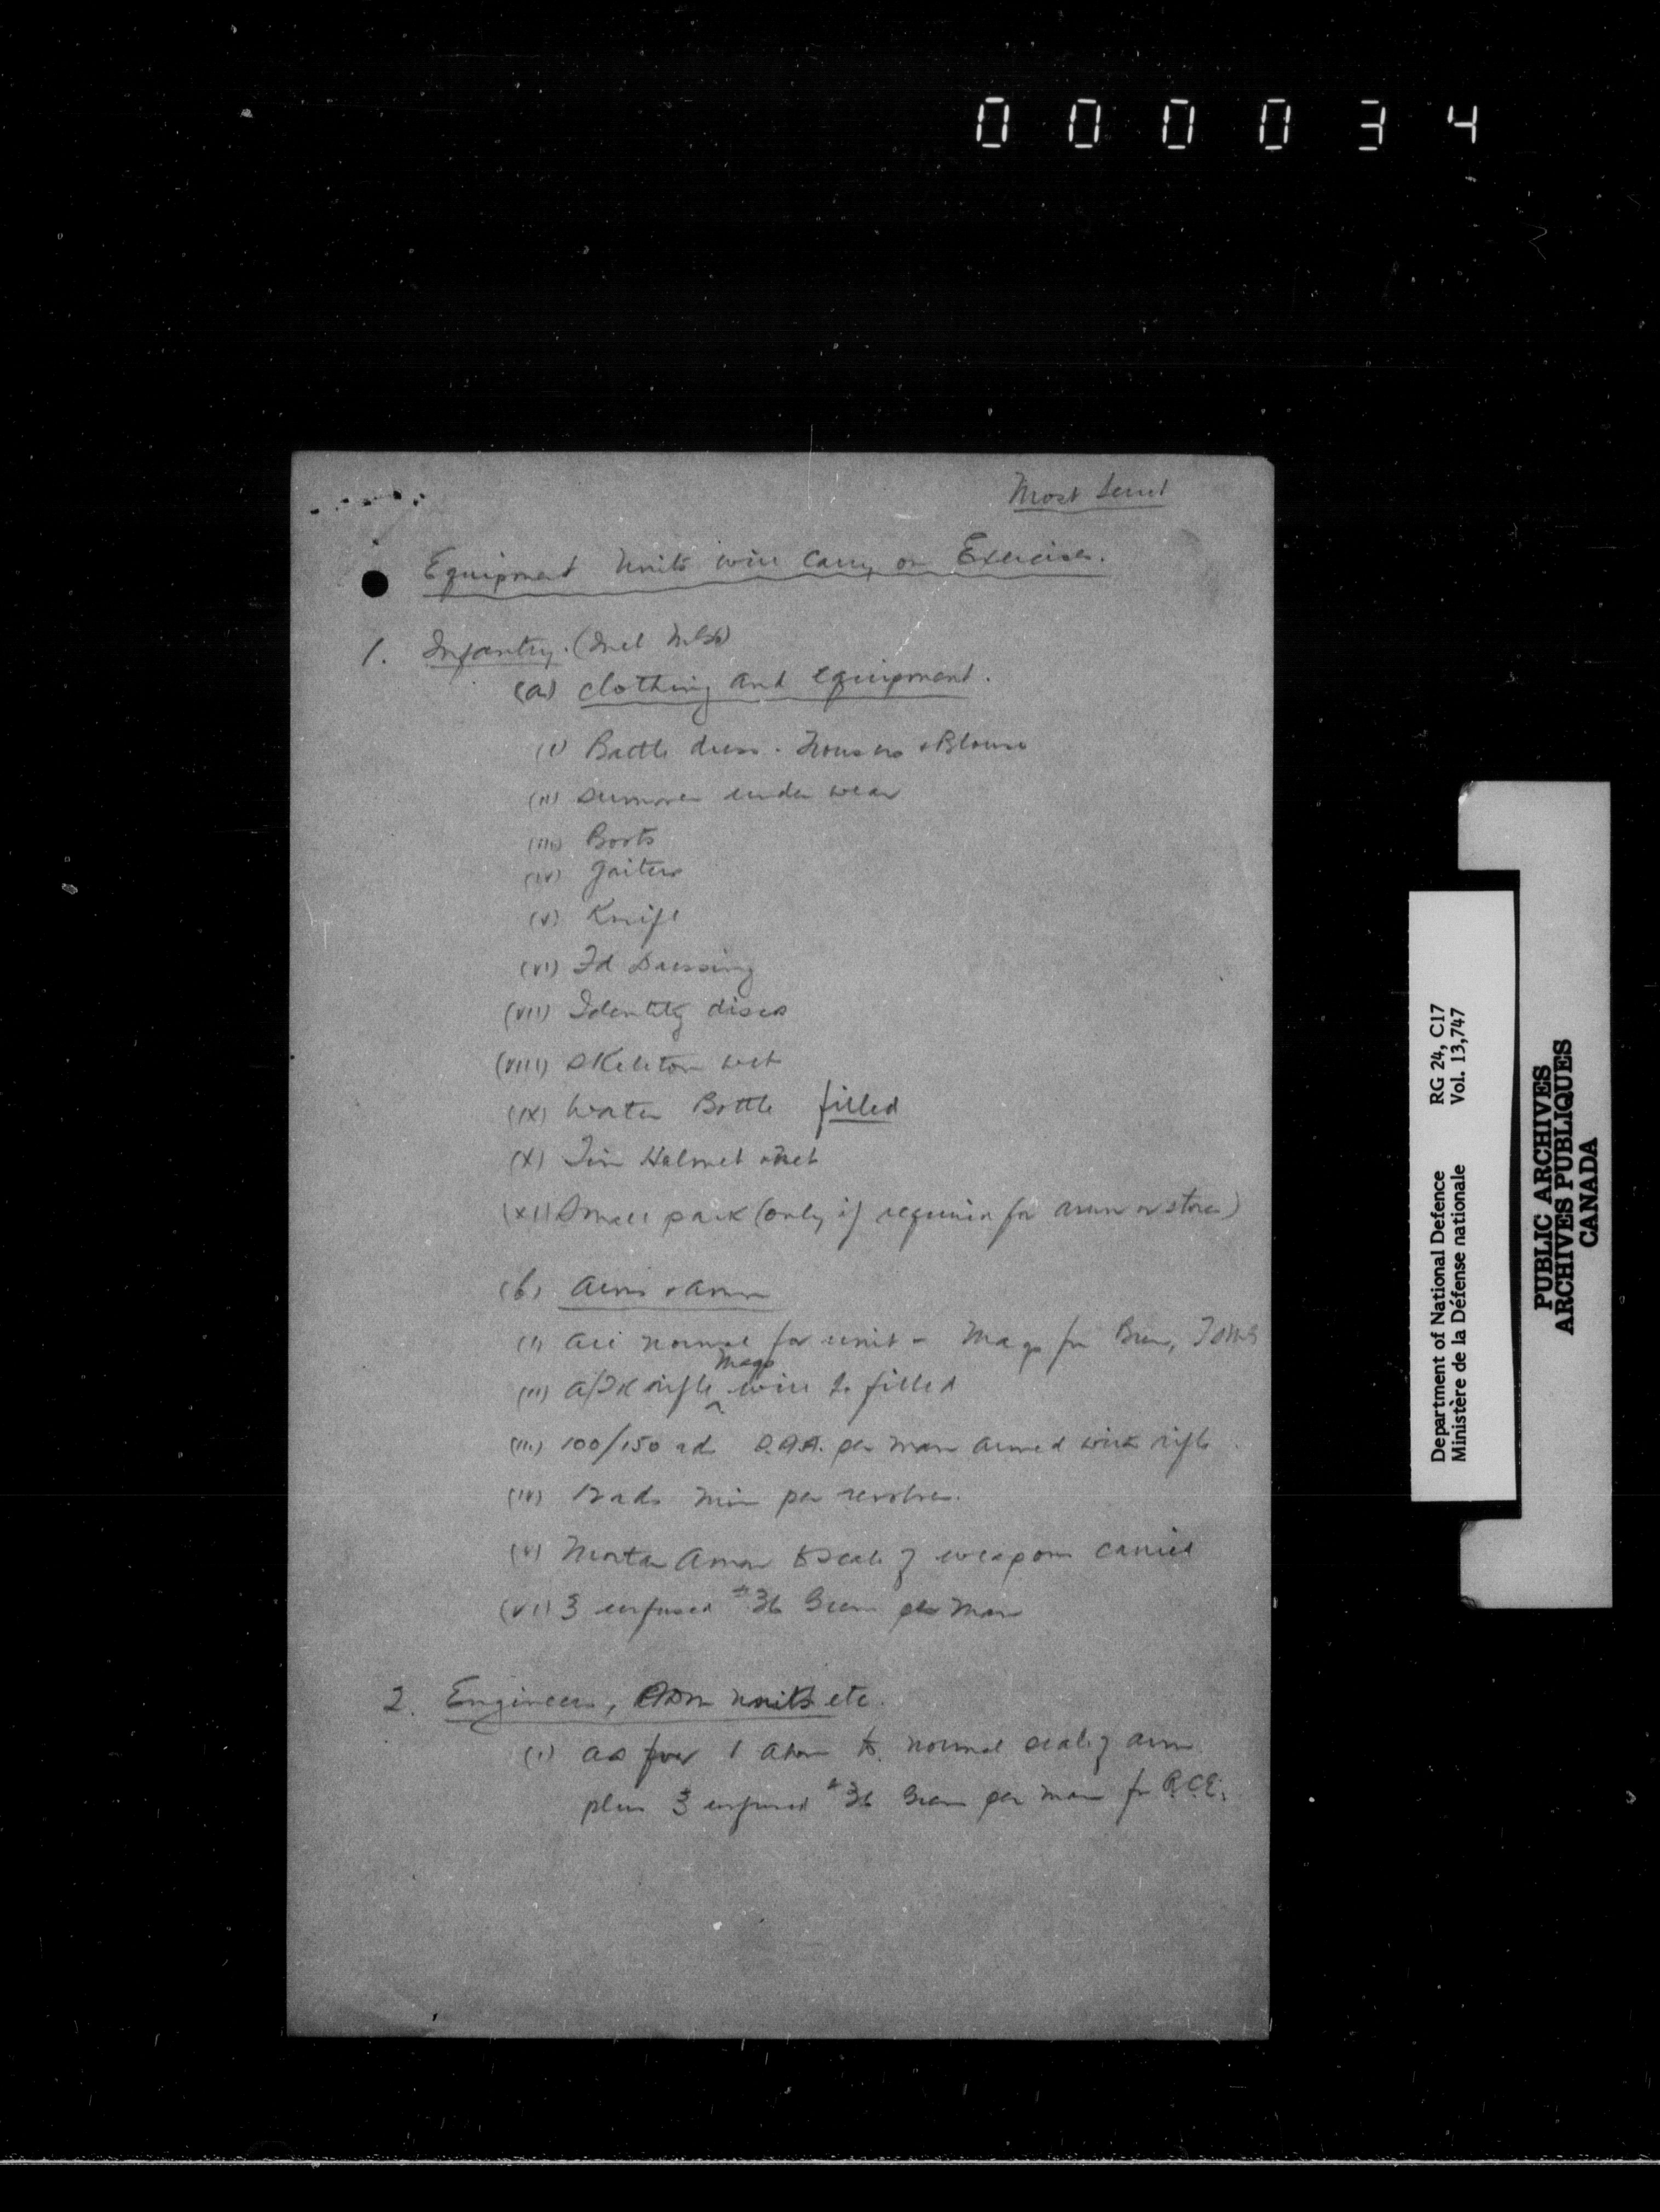 000034
Most Secret
Equipment Units will carry on Exercise.
1. Infantry. (Incl M.G.)
(a) Clothing and Equipment.
(i) Battle dress - Trousers & Blouse
(ii) Summer under wear
(iii) Boots
(iv) Gaiters
(v) Knife
(vi) Fd Dressing
(vii) Identity discs
(viii) Skeleton web
(ix) Water Bottle filled
(x) Tin Helmet & net
(xi) Small pack (only if required for ammn or stores)
(b) Arms & Ammn
(i) All normal for unit - Mags for Bren, TSMG
Mags
(ii) A/TK rifle will be filled
(iii) 100/150 rds S.A.A. per man armed with rifle
(iv) 12 rds min per revolver.
(v) Mortar Ammn to scale of weapons carried
(vi) 3 unfused #36 Gren per man
2. Engineers, Adm Units etc.
(i) as for 1 above to normal scale of arms
plus 3 unfused #36 Gren per man for R.C.E.
Department of National Defence RG 24, C17
Ministère de la Défense nationale Vol. 13,747
PUBLIC ARCHIVES
ARCHIVES PUBLIQUES
CANADA